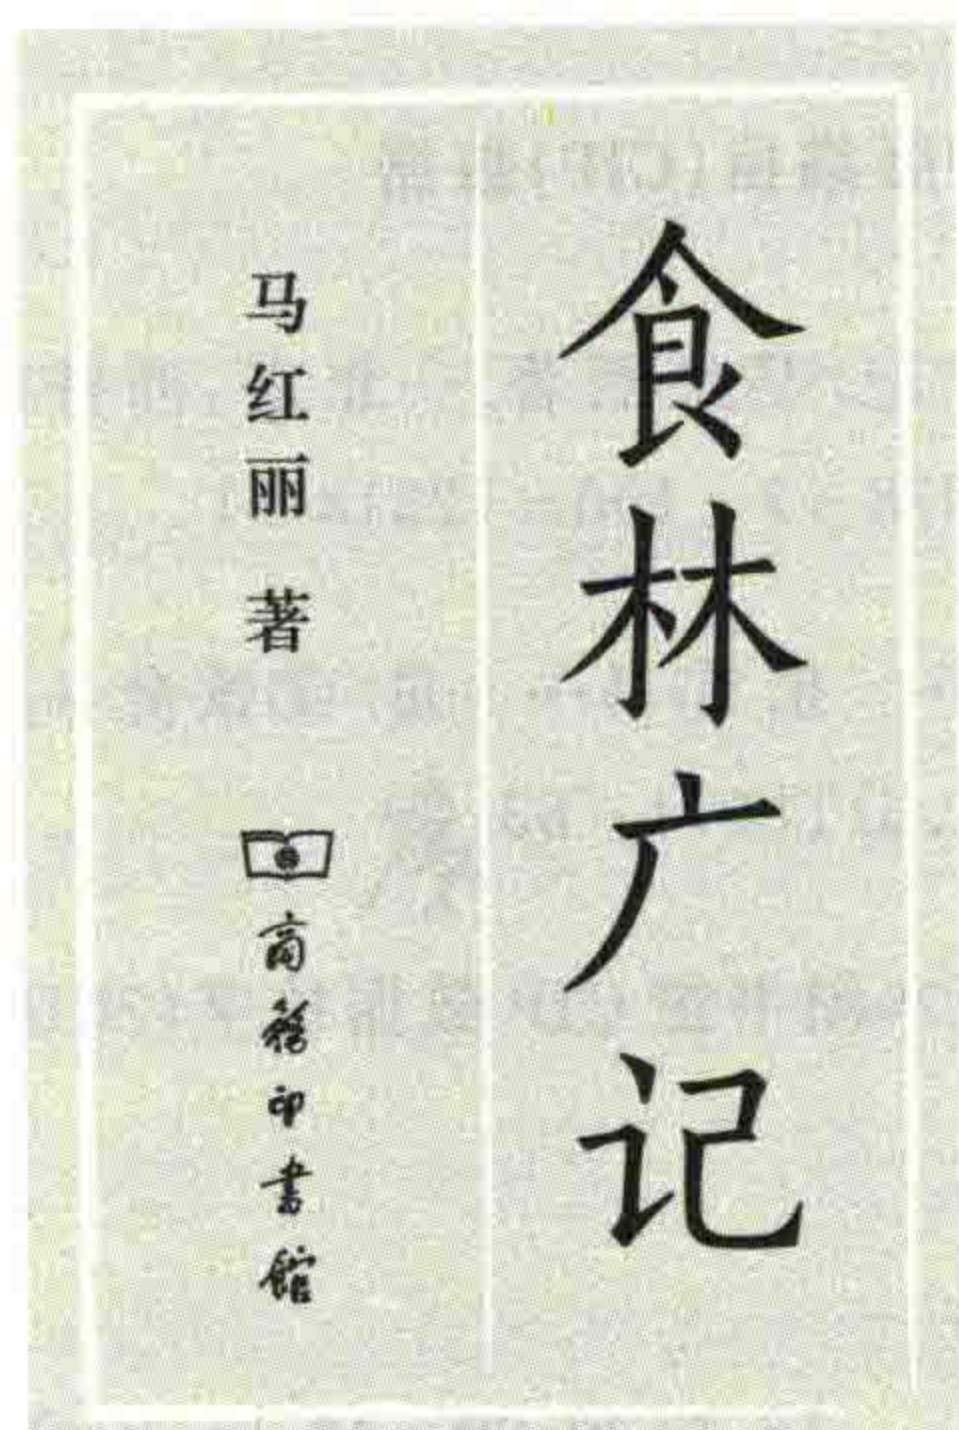 食林广记
马红丽 著
商務印書館